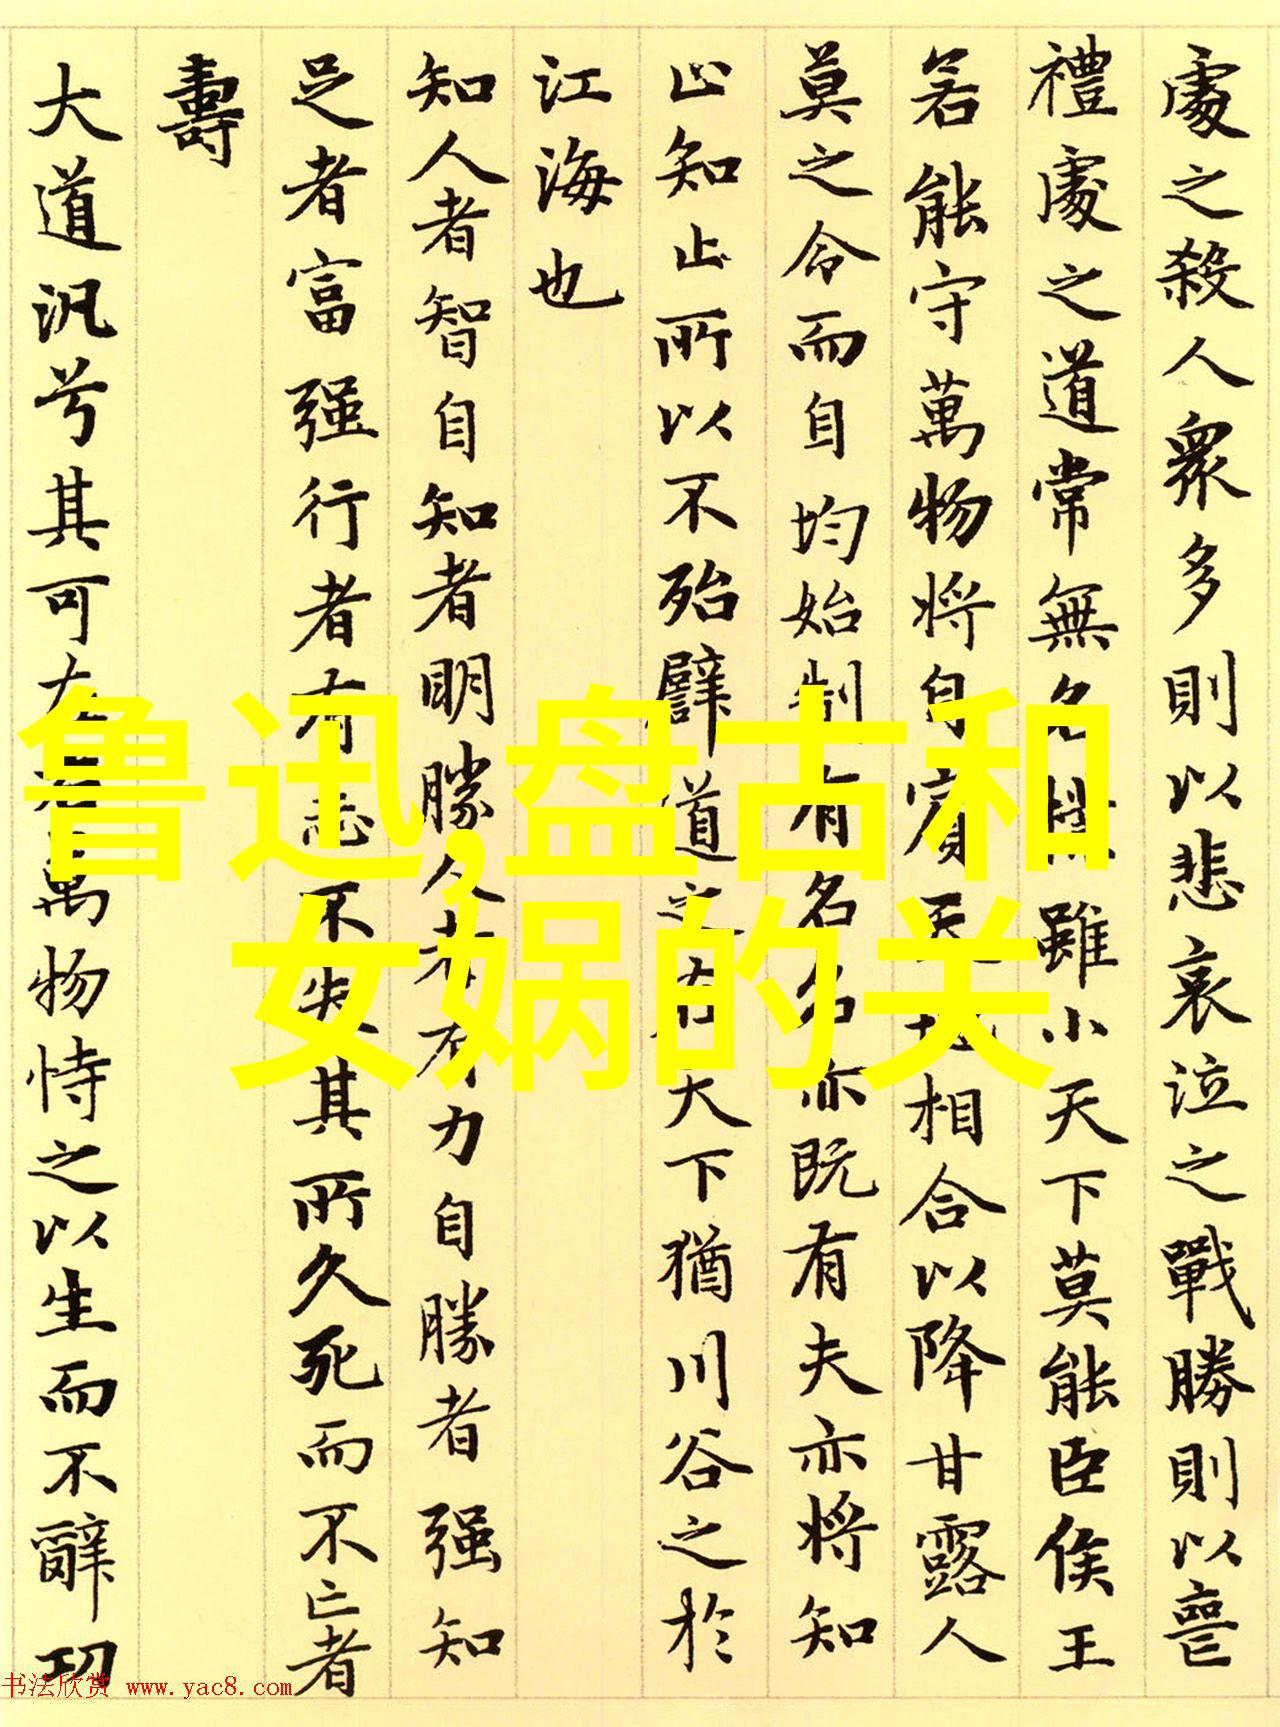 處之殺人衆多則以悲哀泣之戰勝則以喪
禮處之道常無名樸雖小天下莫能臣侯王
若能守萬物將自賓天地相合以降甘露人
莫之令而自均始制有名名亦既有夫亦將知
止知止所以不殆譬道之在天下猶川谷之於
江海也
知人者智自知者明勝人者有力自勝者强知
足者富强行者有志不失其所久死而不亡者
壽
大道汎兮其可左右萬物恃之以生而不辭功
鲁迅,盘古和
女娲的关
书法欣赏 www.yac8.com